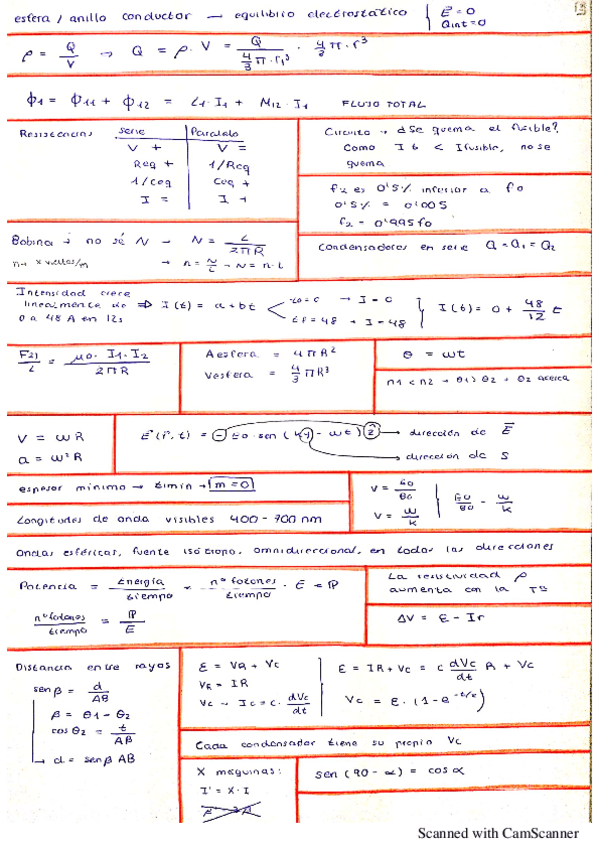 esfera / anillo conductor → equilibrio electrostático { E⃗ = 0
Qint = 0
ρ = Q/V → Q = ρ · V = Q / (4/3 π · r₁³) · 4/3 π · r³
Φ1 = Φ11 + Φ12 = L1 · I1 + M12 · I1 FLUJO TOTAL
Resistencias serie Paralelo
V + V =
Req + 1/Req
1/Ceq Ceq +
I = I +
Circuito → ¿Se quema el fusible?
Como I6 < Ifusible, no se
quema
f2 es 0'5% inferior a f0
0'5% = 0'005
f2 = 0'995f0
Bobina : no sé N → N = L/2πR
n → x vueltas/m → n = N/L → N = n · L
Condensadores en serie Q = Q1 = Q2
Intensidad crece
linealmente de ⇒ I(t) = a + bt
0 a 48 A en 12s
t0 = 0 → I = 0
tf = 48 → I = 48
I(t) = 0 + 48/12 t
F21/L = μ0 · I1 · I2 / 2πR
Aesfera = 4πR²
Vesfera = 4/3 πR³
θ = ωt
n1 < n2 → θ1 > θ2 → θ2 acerca
v = ωR
a = ω²R
E⃗ (r⃗, t) = − E0 · sen (ky − ωt) ẑ → dirección de E⃗
→ dirección de S
espesor mínimo → tmin → m = 0
Longitudes de onda visibles 400 - 700 nm
v = E0/B0
v = ω/k
E0/B0 = ω/k
Ondas esféricas, fuente isótropa, omnidireccional, en todas las direcciones
Potencia = Energía/tiempo = nº fotones/tiempo · E = P
nº fotones/tiempo = P/E
La resistividad ρ
aumenta con la T
ΔV = ε − Ir
Distancia entre rayos
sen β = d/AB
β = θ1 − θ2
cos θ2 = t/AB
→ d = sen β AB
ε = VR + Vc
VR = IR
Vc → Ic = C · dVc/dt
ε = IR + Vc = C dVc/dt R + Vc
Vc = ε · (1 − e^(−t/τ))
Cada condensador tiene su propio Vc
X máquinas:
I' = X · I
sen (90 − α) = cos α
Scanned with CamScanner